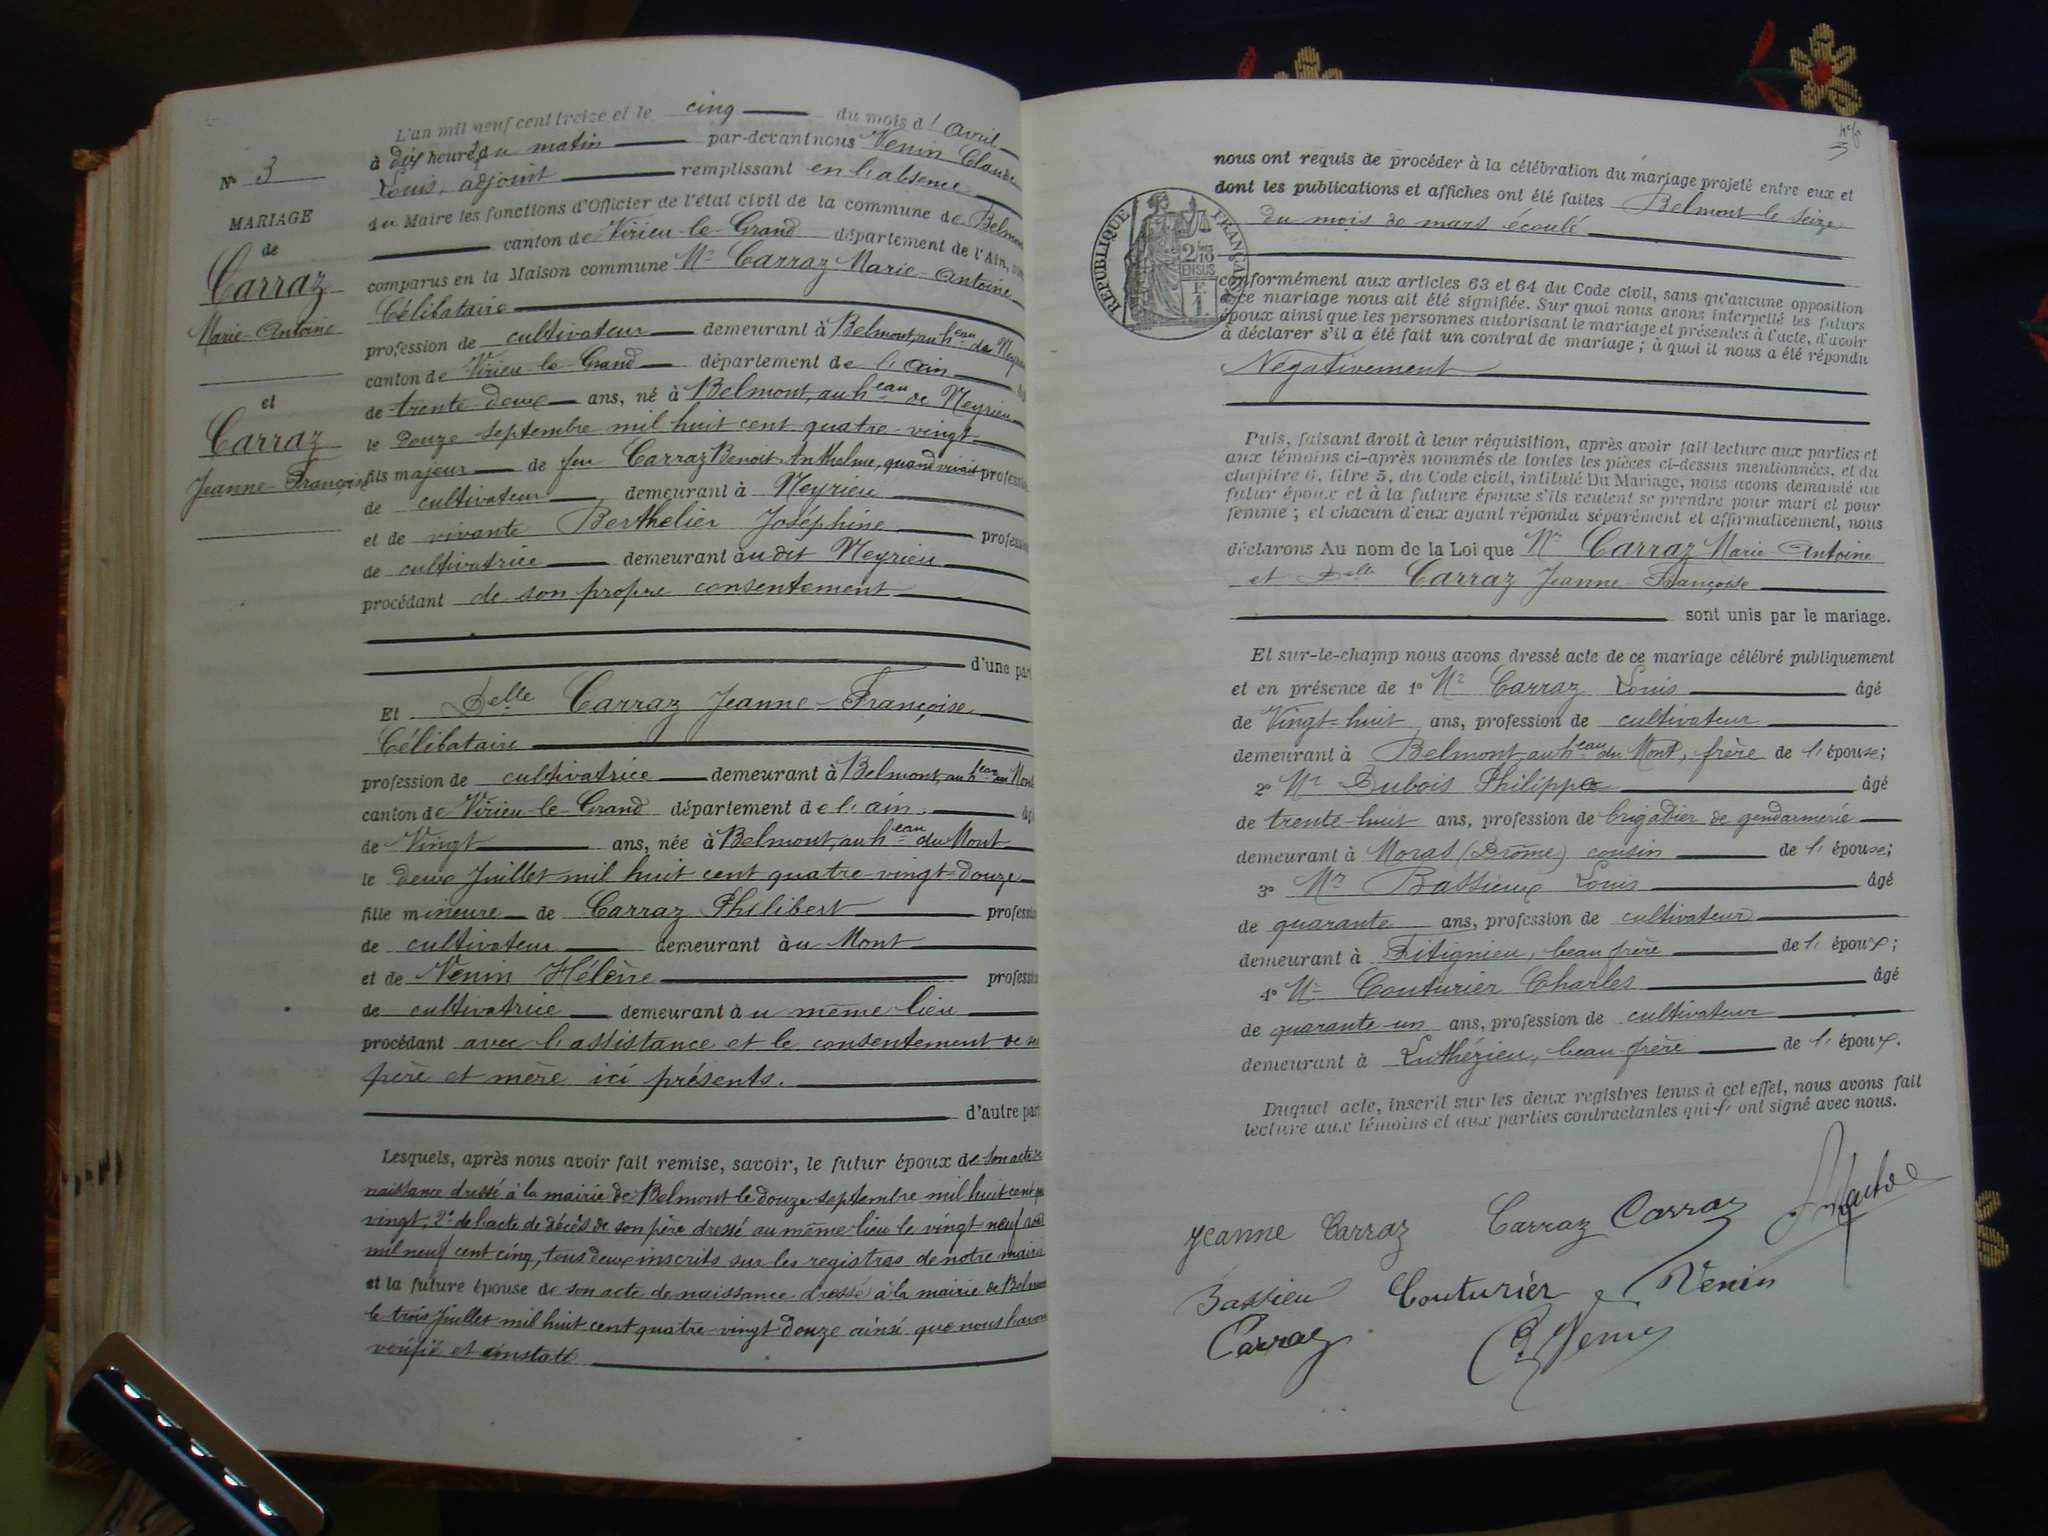 L'an mil neuf cent treize et le cinq du mois d'Avril
à dix heures du matin par-devant nous Venin Claude
Louis, adjoint remplissant en l'absence
du Maire les fonctions d'Officier de l'état civil de la commune de Belmont
canton de Virieu-le-Grand département de l'Ain, sont
comparus en la Maison commune Mr Carraz Marie-Antoine
Célibataire
profession de cultivateur demeurant à Belmont, au heau de Meyrieu
canton de Virieu-le-Grand département de l'Ain
de trente-deux ans, né à Belmont, au heau de Meyrieu
le douze septembre mil huit cent quatre-vingt
fils majeur de feu Carraz Benoit-Anthelme, quand vivait profession
de cultivateur demeurant à Meyrieu
et de vivante Berthelier Joséphine profession
de cultivatrice demeurant au dit Meyrieu
procédant de son propre consentement
d'une part
Et Delle Carraz Jeanne-Françoise
Célibataire
profession de cultivatrice demeurant à Belmont, au heau du Mont
canton de Virieu-le-Grand département de l'Ain, âgée
de Vingt ans, née à Belmont, au heau du Mont
le deux Juillet mil huit cent quatre-vingt-douze
fille mineure de Carraz Philibert profession
de cultivateur demeurant au Mont
et de Venin Hélène profession
de cultivatrice demeurant au même lieu
procédant avec l'assistance et le consentement de ses
père et mère ici présents.
d'autre part
Lesquels, après nous avoir fait remise, savoir, le futur époux de son acte de
naissance dressé à la mairie de Belmont le douze septembre mil huit cent quatre
vingt, 2° de l'acte de décès de son père dressé au même lieu le vingt neuf août
mil neuf cent cinq, tous deux inscrits sur les registres de notre mairie
et la future épouse de son acte de naissance dressé à la mairie de Belmont
le trois Juillet mil huit cent quatre-vingt-douze ainsi que nous l'avons
vérifié et constaté
N° 3
MARIAGE
de
Carraz
Marie-Antoine
et
Carraz
Jeanne-Françoise
nous ont requis de procéder à la célébration du mariage projeté entre eux et
dont les publications et affiches ont été faites Belmont le seize
du mois de mars écoulé
RÉPUBLIQUE FRANÇAISE
2/10 EN SUS
F. 1.
conformément aux articles 63 et 64 du Code civil, sans qu'aucune opposition
à ce mariage nous ait été signifiée. Sur quoi nous avons interpellé les futurs
époux ainsi que les personnes autorisant le mariage et présentes à l'acte, d'avoir
à déclarer s'il a été fait un contrat de mariage ; à quoi il nous a été répondu
Négativement
Puis, faisant droit à leur réquisition, après avoir fait lecture aux parties et
aux témoins ci-après nommés de toutes les pièces ci-dessus mentionnées, et du
chapitre 6, titre 5, du Code civil, intitulé Du Mariage, nous avons demandé au
futur époux et à la future épouse s'ils veulent se prendre pour mari et pour
femme ; et chacun d'eux ayant répondu séparément et affirmativement, nous
déclarons Au nom de la Loi que Mr Carraz Marie-Antoine
et Delle Carraz Jeanne-Françoise
sont unis par le mariage.
Et sur-le-champ nous avons dressé acte de ce mariage célébré publiquement
et en présence de 1° Mr Carraz Louis âgé
de Vingt-huit ans, profession de cultivateur
demeurant à Belmont, au heau du Mont, frère de l'épouse;
2° Mr Dubois Philippe âgé
de trente-huit ans, profession de brigadier de gendarmerie
demeurant à Moras (Drôme) cousin de l'épouse;
3° Mr Bassieux Louis âgé
de quarante ans, profession de cultivateur
demeurant à Fitignieu, beau frère de l'époux;
4° Mr Couturier Charles âgé
de quarante-un ans, profession de cultivateur
demeurant à Luthézieu, beau-frère de l'époux.
Duquel acte, inscrit sur les deux registres tenus à cet effet, nous avons fait
lecture aux témoins et aux parties contractantes qui l'ont signé avec nous.
Jeanne Carraz Carraz Carraz
Bassieu Couturier Venin
Carraz Venin